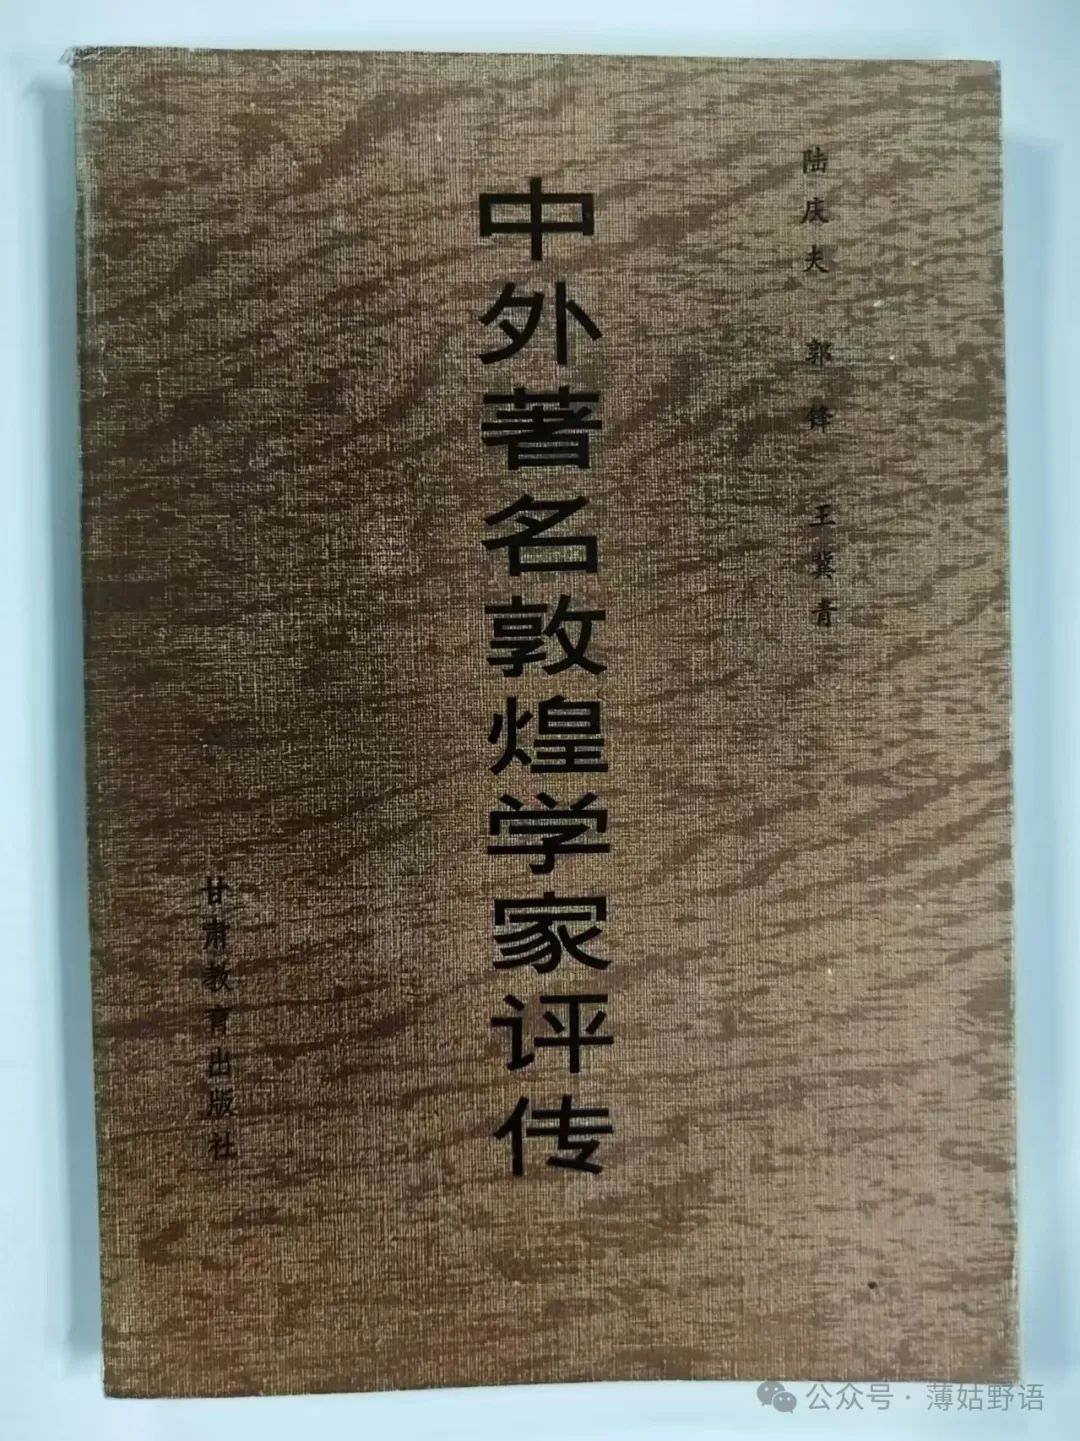 陆庆夫 郭锋 王冀青
中外著名敦煌学家评传
甘肃教育出版社
公众号·薄姑野语